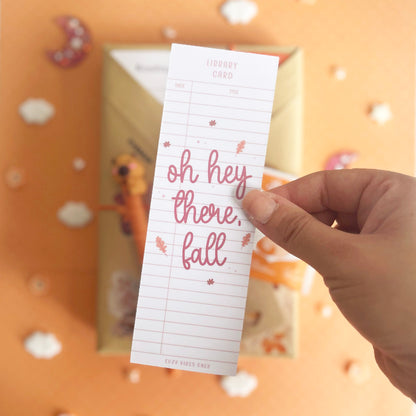 LIBRARY
CARD
oh hey
there,
fall
COZY VIBES ONLY